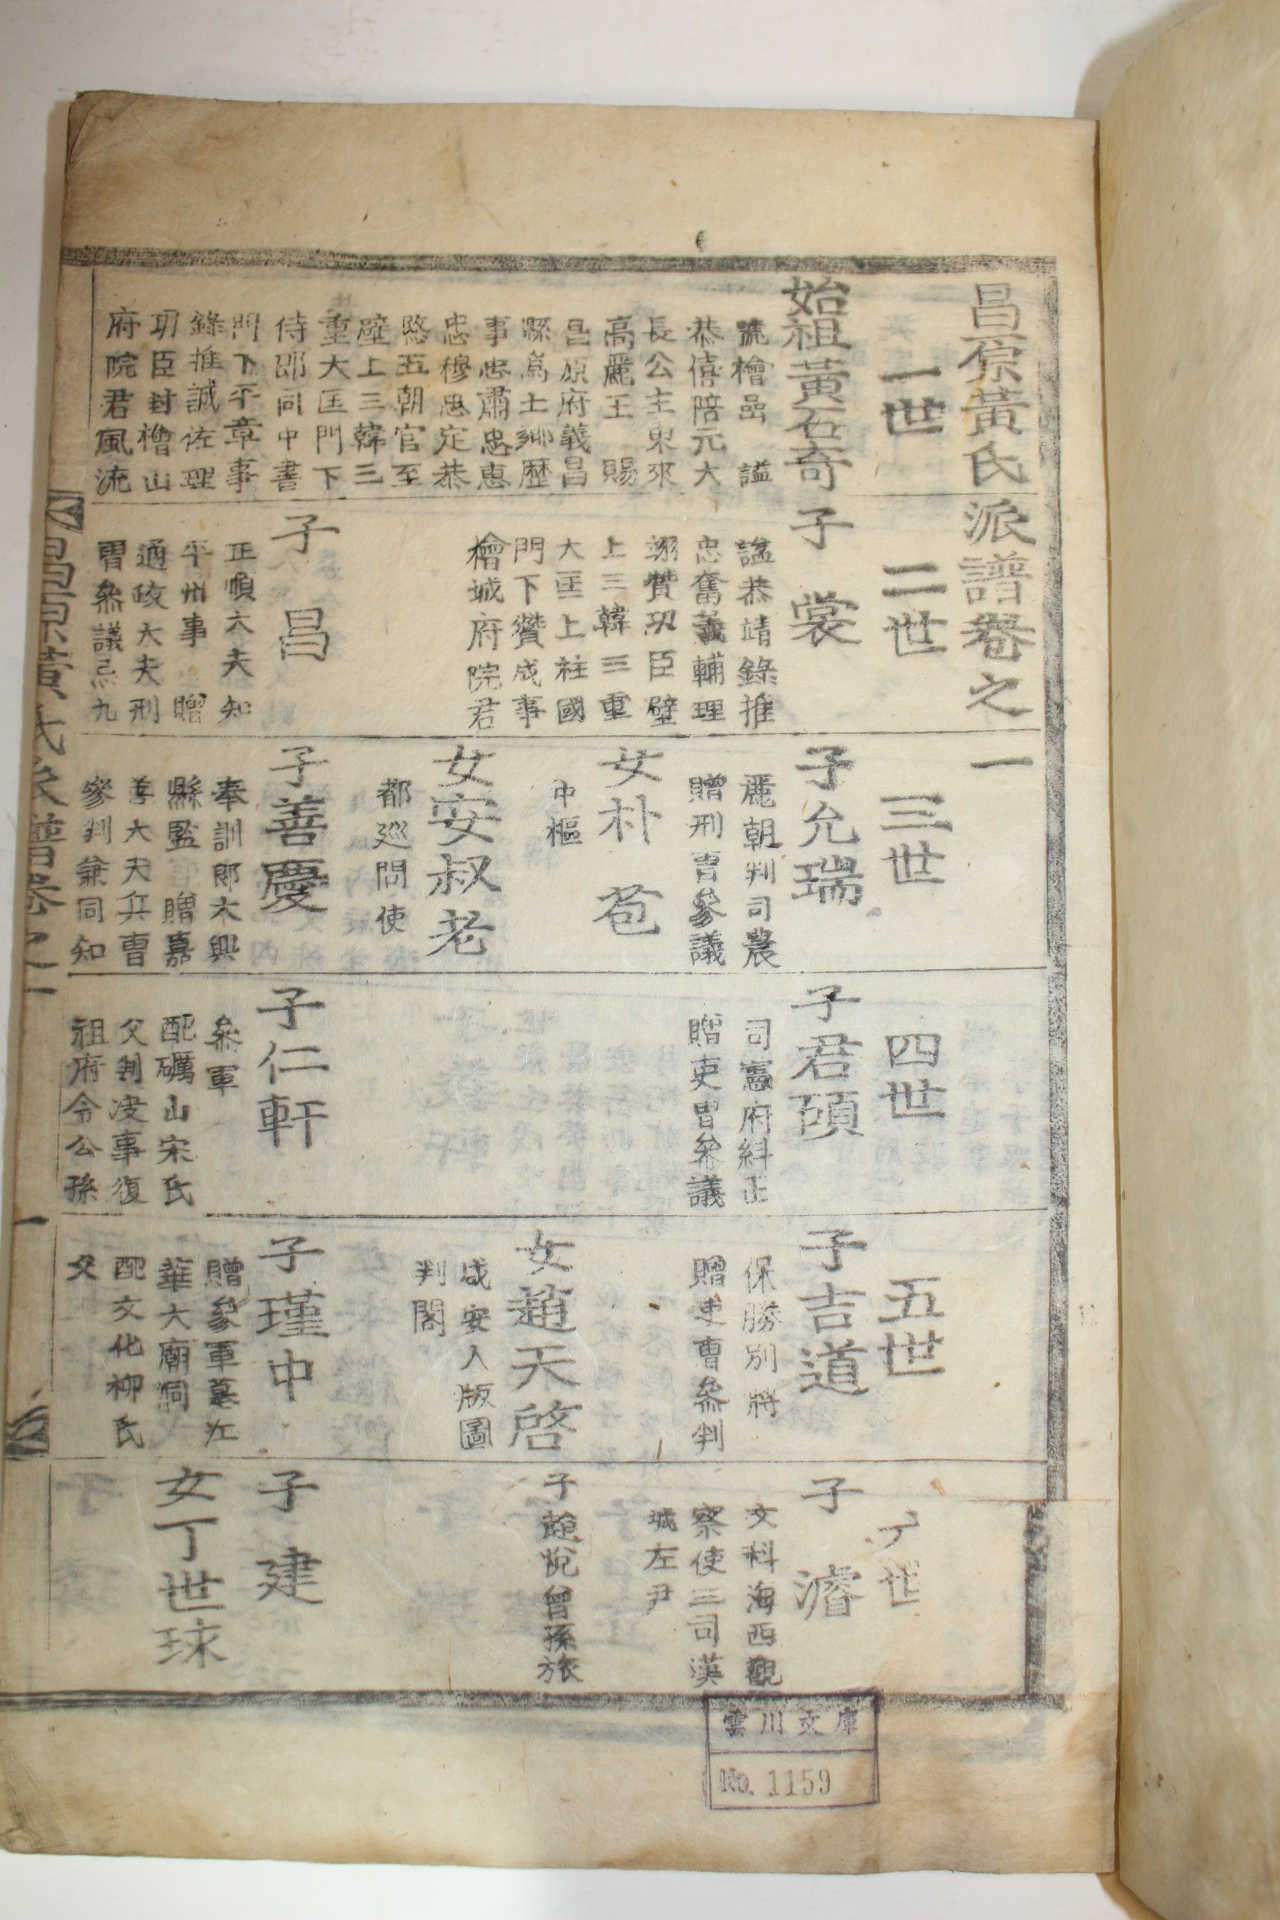 昌原黃氏派譜卷之一
一世
始祖黃石奇
號檜山 謚
恭僖陪元大
長公主東來
高麗王 賜
昌原府義昌
縣爲土鄉歷
事忠肅忠惠
忠穆忠定恭
愍五朝官至
壁上三韓三
重大匡門下
侍郎同中書
門下平章事
錄推誠佐理
功臣封檜山
府院君風流
二世
子 裳
謚恭靖錄推
忠奮義輔理
翊贊功臣壁
上三韓三重
大匡上柱國
門下贊成事
檜城府院君
子 昌
正順大夫知
平州事 贈
通政大夫刑
曹參議忌九
三世
子允瑞
麗朝判司農
贈刑曹參議
女朴 苞
中樞
女安叔老
都巡問使
子善慶
奉訓郎大興
縣監 贈嘉
善大夫兵曹
參判兼同知
四世
子君碩
司憲府糾正
贈吏曹參議
子仁軒
參軍
配礪山宋氏
父判决事復
祖府令公孫
五世
子吉道
保勝別將
贈吏曹參判
女趙天啓
咸安人版圖
判閣
子瑾中
贈參軍墓在
華大廟洞
配文化柳氏
父
六世
子 濬
文科海西觀
察使三司漢
城左尹
子趙悅曾孫旅
子 建
女丁世球
昌原黃氏派譜卷之一
一
雲川文庫
No. 1159